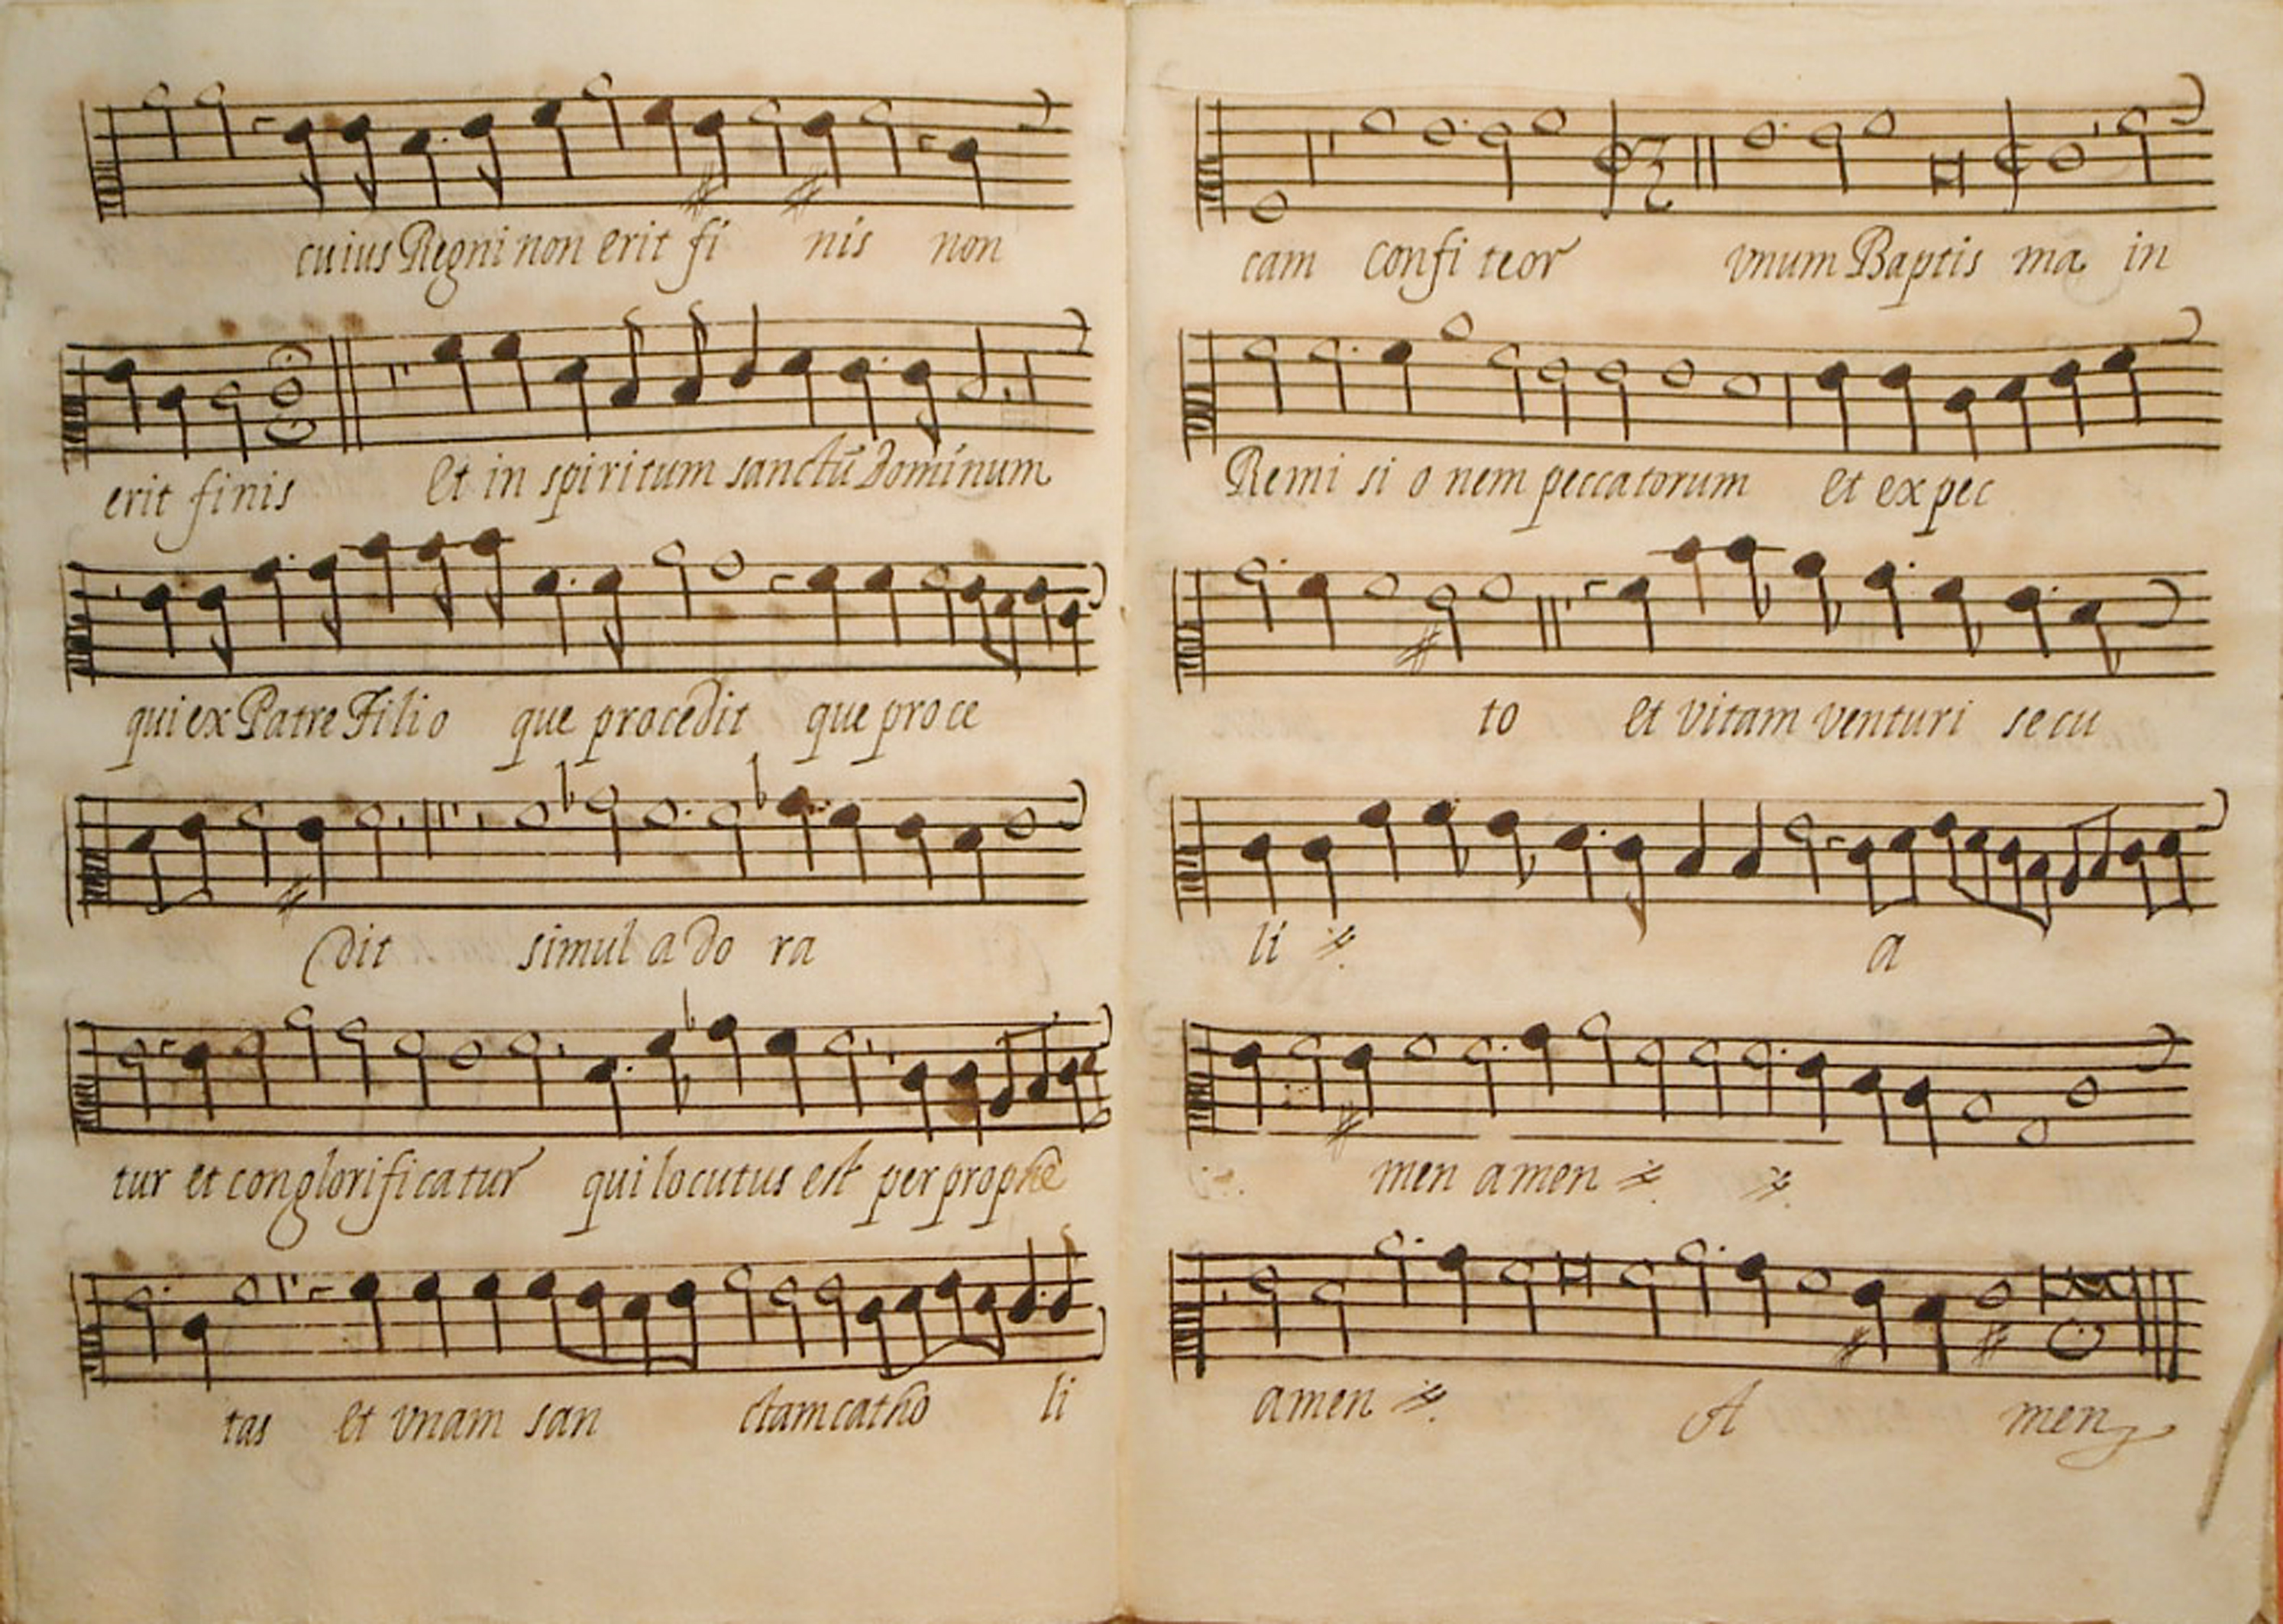 cuius Regni non erit fi nis non
erit finis Et in spiritum sanctũ Dominum
qui ex Patre Filio que procedit que proce
dit simul a do ra
tur et conglorificatur qui locutus est per prophe
tas et vnam san ctam catho li
cam confi teor vnum Baptis ma in
Remi si o nem peccatorum et ex pec
to et vitam venturi se cu
li a
men amen
amen A men